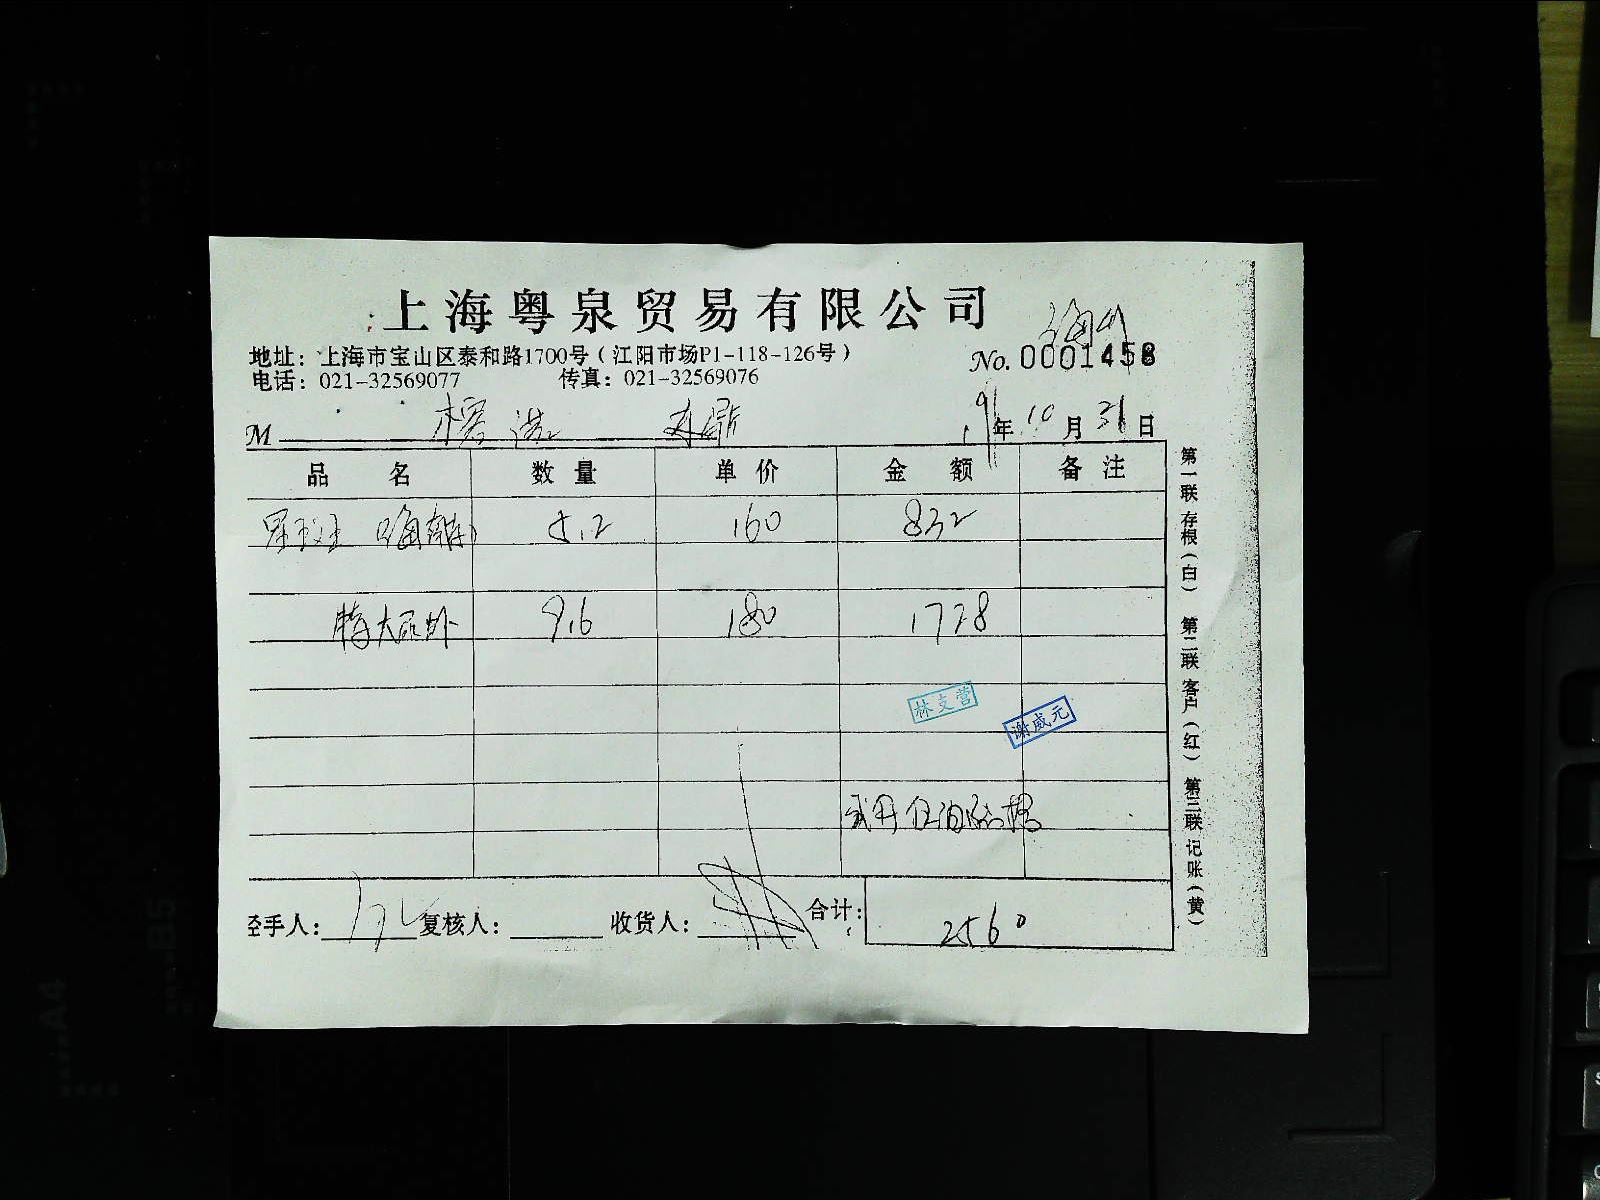 上海粤泉贸易有限公司
地址：上海市宝山区泰和路1700号（江阳市场P1-118-126号）
No. 0001458
电话：021-32569077 传真：021-32569076
M 榕港
19年10月31日
品名 数量 单价 金额 备注
5.2 160 832
特大 9.6 180 1728
林支营
谢威元
经手人： 复核人： 收货人： 合计： 2560
第一联 存根（白） 第二联 客户（红） 第三联 记账（黄）
B5
A4